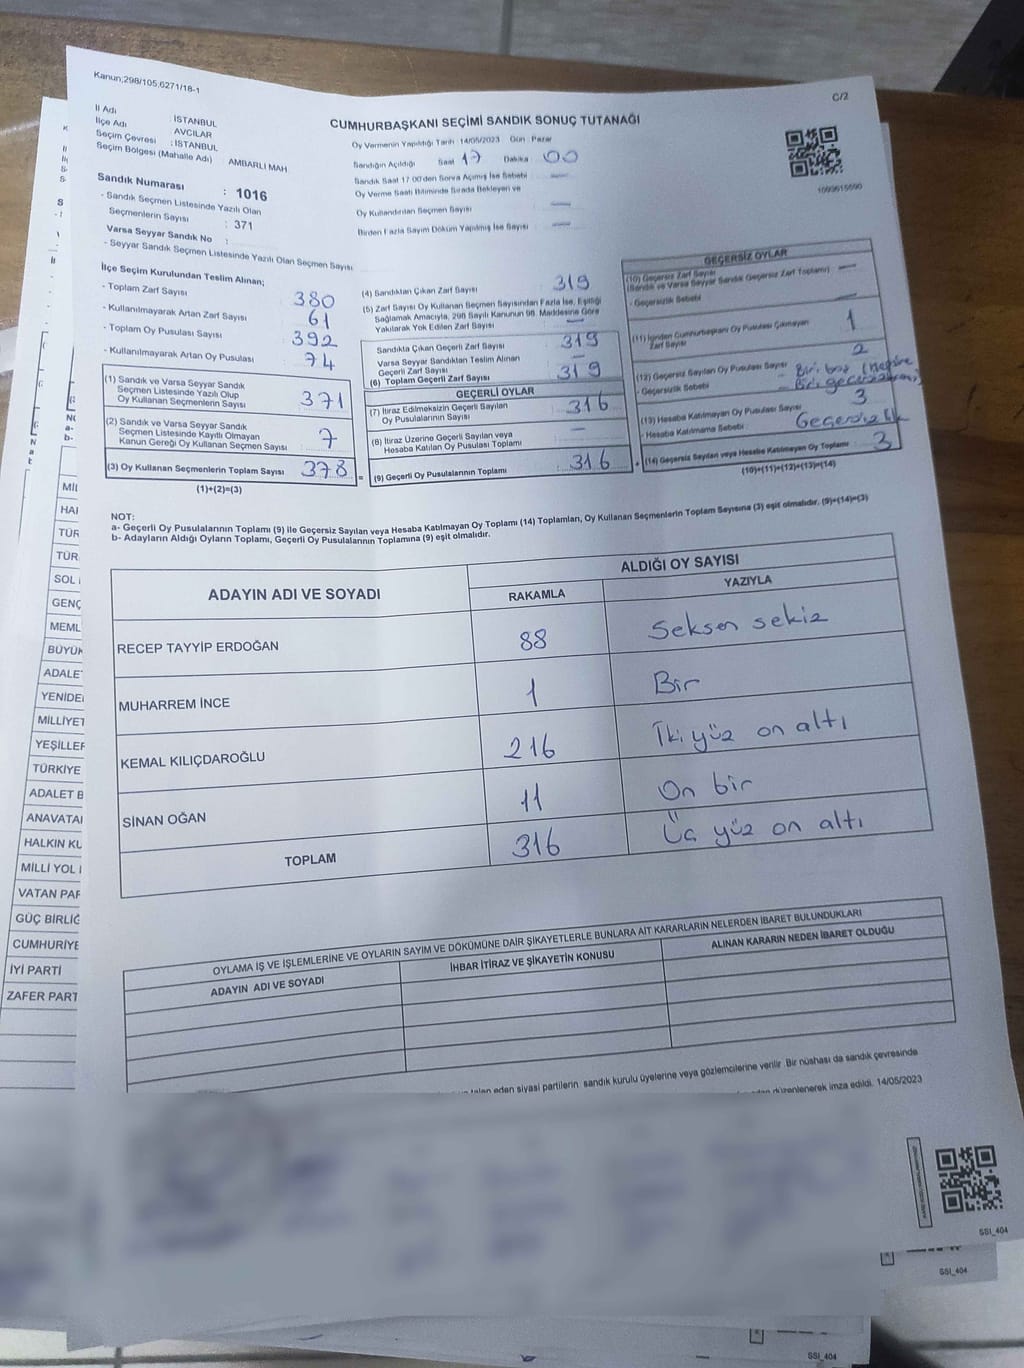 Kanun;298/105,6271/18-1
C/2
CUMHURBAŞKANI SEÇİMİ SANDIK SONUÇ TUTANAĞI
İl Adı : İSTANBUL
İlçe Adı : AVCILAR
Seçim Çevresi : İSTANBUL
Seçim Bölgesi (Mahalle Adı) AMBARLI MAH
Sandık Numarası : 1016
- Sandık Seçmen Listesinde Yazılı Olan
Seçmenlerin Sayısı : 371
Varsa Seyyar Sandık No :
- Seyyar Sandık Seçmen Listesinde Yazılı Olan Seçmen Sayısı
Oy Vermenin Yapıldığı Tarih 14/05/2023 Gün : Pazar
Sandığın Açıldığı Saat 17 Dakika 00
Sandık Saat 17.00'den Sonra Açılmış İse Sebebi —
Oy Verme Saati Bitiminde Sırada Bekleyen ve
Oy Kullandırılan Seçmen Sayısı —
Birden Fazla Sayım Döküm Yapılmış İse Sayısı —
1099615690
İlçe Seçim Kurulundan Teslim Alınan;
- Toplam Zarf Sayısı 380
- Kullanılmayarak Artan Zarf Sayısı 61
- Toplam Oy Pusulası Sayısı 392
- Kullanılmayarak Artan Oy Pusulası 74
(1) Sandık ve Varsa Seyyar Sandık
Seçmen Listesinde Yazılı Olup
Oy Kullanan Seçmenlerin Sayısı 371
(2) Sandık ve Varsa Seyyar Sandık
Seçmen Listesinde Kayıtlı Olmayan
Kanun Gereği Oy Kullanan Seçmen Sayısı 7
(3) Oy Kullanan Seçmenlerin Toplam Sayısı 378
(1)+(2)=(3)
(4) Sandıktan Çıkan Zarf Sayısı 319
(5) Zarf Sayısı Oy Kullanan Seçmen Sayısından Fazla İse, Eşitliği
Sağlamak Amacıyla, 298 Sayılı Kanunun 98. Maddesine Göre
Yakılarak Yok Edilen Zarf Sayısı —
Sandıkta Çıkan Geçerli Zarf Sayısı 319
Varsa Seyyar Sandıktan Teslim Alınan
Geçerli Zarf Sayısı —
(6) Toplam Geçerli Zarf Sayısı 319
GEÇERLİ OYLAR
(7) İtiraz Edilmeksizin Geçerli Sayılan
Oy Pusulalarının Sayısı 316
(8) İtiraz Üzerine Geçerli Sayılan veya
Hesaba Katılan Oy Pusulası Toplamı —
= (9) Geçerli Oy Pusulalarının Toplamı 316
GEÇERSİZ OYLAR
(10) Geçersiz Zarf Sayısı
(Sandık ve Varsa Seyyar Sandık Geçersiz Zarf Toplamı) —
- Geçersizlik Sebebi —
(11) İçinden Cumhurbaşkanı Oy Pusulası Çıkmayan
Zarf Sayısı 1
(12) Geçersiz Sayılan Oy Pusulası Sayısı 2
- Geçersizlik Sebebi - Biri boş
- Biri geçersiz
(13) Hesaba Katılmayan Oy Pusulası Sayısı 3
- Hesaba Katılmama Sebebi : Geçersizlik
+ (14) Geçersiz Sayılan veya Hesaba Katılmayan Oy Toplamı 3
(10)+(11)+(12)+(13)=(14)
NOT:
a- Geçerli Oy Pusulalarının Toplamı (9) ile Geçersiz Sayılan veya Hesaba Katılmayan Oy Toplamı (14) Toplamları, Oy Kullanan Seçmenlerin Toplam Sayısına (3) eşit olmalıdır. (9)+(14)=(3)
b- Adayların Aldığı Oyların Toplamı, Geçerli Oy Pusulalarının Toplamına (9) eşit olmalıdır.
ADAYIN ADI VE SOYADI
ALDIĞI OY SAYISI
RAKAMLA YAZIYLA
RECEP TAYYİP ERDOĞAN 88 Seksen sekiz
MUHARREM İNCE 1 Bir
KEMAL KILIÇDAROĞLU 216 İki yüz on altı
SİNAN OĞAN 11 On bir
TOPLAM 316 Üç yüz on altı
OYLAMA İŞ VE İŞLEMLERİNE VE OYLARIN SAYIM VE DÖKÜMÜNE DAİR ŞİKAYETLERLE BUNLARA AİT KARARLARIN NELERDEN İBARET BULUNDUKLARI
ADAYIN ADI VE SOYADI
İHBAR İTİRAZ VE ŞİKAYETİN KONUSU
ALINAN KARARIN NEDEN İBARET OLDUĞU
talep eden siyasi partilerin sandık kurulu üyelerine veya gözlemcilerine verilir Bir nüshası da sandık çevresinde
düzenlenerek imza edildi. 14/05/2023
SSI_404
SSI_404
SSI_404
MİL
HAK
TÜR
TÜR
SOL
GENÇ
MEML
BÜYÜK
ADALET
YENİDE
MİLLİYET
YEŞİLLER
TÜRKİYE
ADALET B
ANAVATA
HALKIN KU
MİLLİ YOL
VATAN PAR
GÜÇ BİRLİĞ
CUMHURİYE
İYİ PARTİ
ZAFER PART